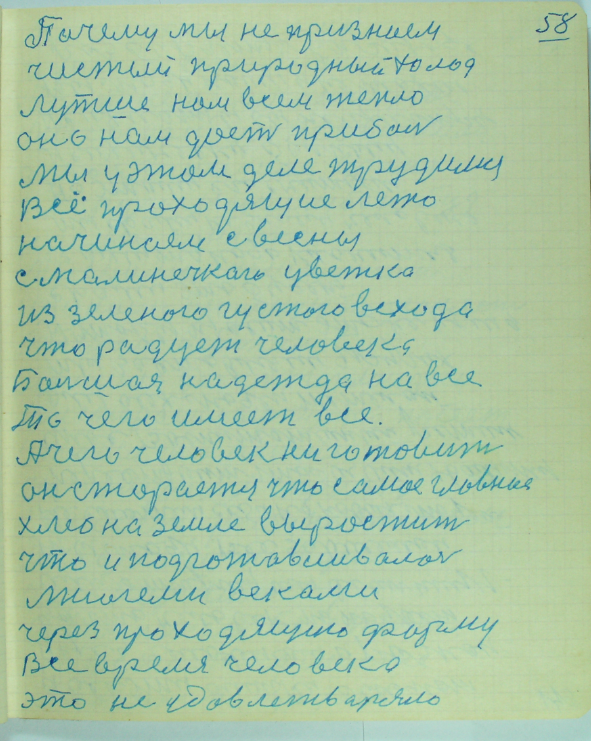 58
Почему мы не признаем
чистый природный холод
лутше нам всем тепло
оно нам дает прибал
мы у этом деле трудимся
Всё проходящие лето
начинаем с весны
с малинечкаго цветка
из зеленого густого всхода
что радует человека
Большая надежда на все
То чего имеет все.
А чего человек ни готовит
он старается что самое главное
хлеб на земле выростит
что и подготавливалон
многеми веками
через проходящую форму
Все время человека
это не удовлетваряло